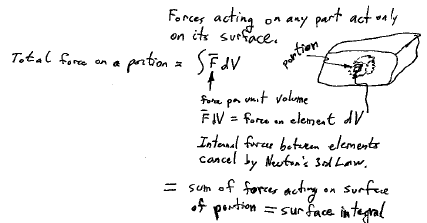 Forces acting on any part act only
on its surface.
portion
Total force on a portion = ∫ F̄ dV
force per unit volume
F̄ dV = force on element dV
Internal forces between elements
cancel by Newton's 3rd Law.
= sum of forces acting on surface
of portion = surface integral